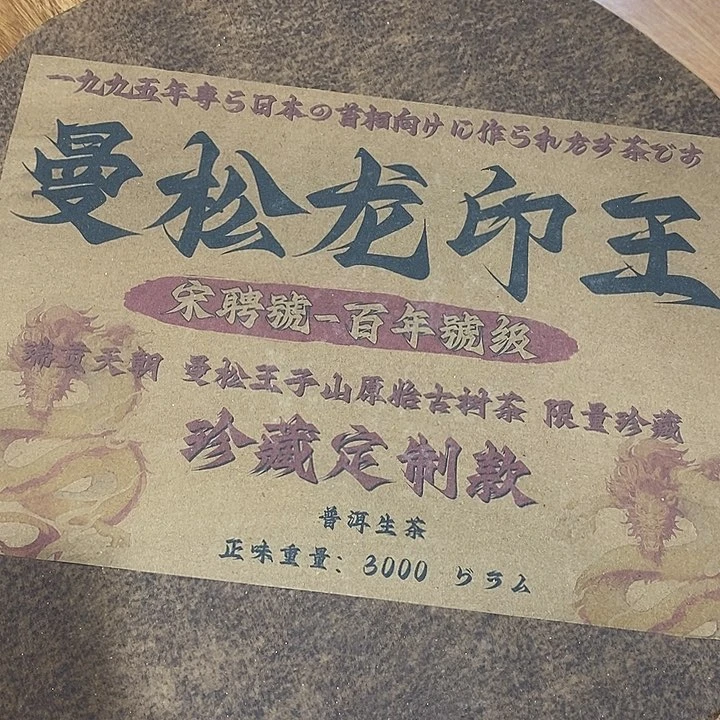 一九九五年専う日本の首相向けに作られたす茶です
曼松龙印王
宋聘號-百年號级
瑞贡天朝 曼松王子山原始古树茶 限量珍藏
珍藏定制款
普洱生茶
正味重量：3000 ぢラム